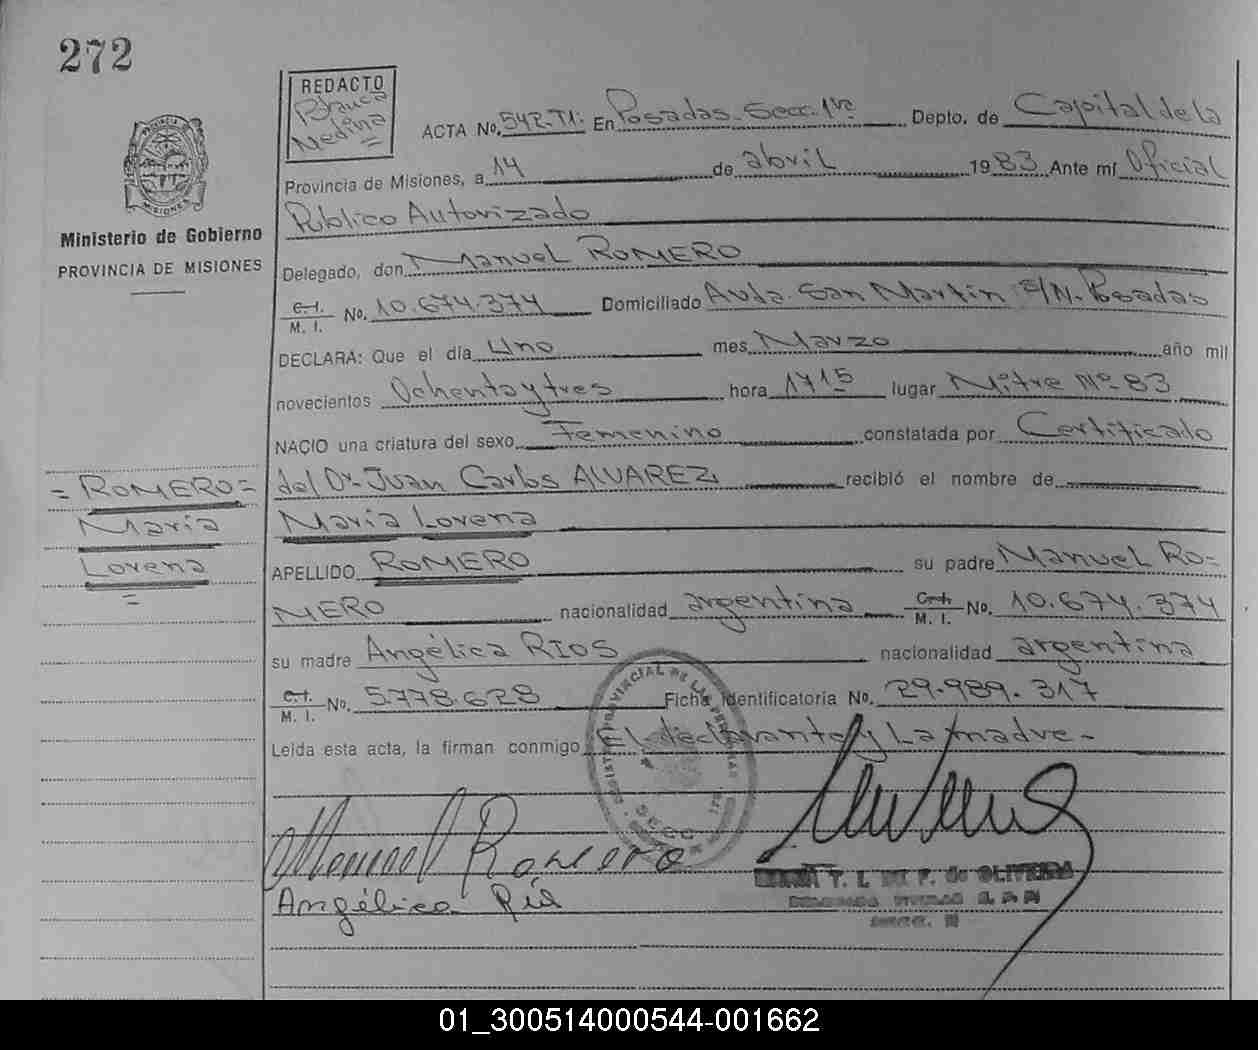 272
REDACTO
Blanca
Medina
ACTA No. 542-T1: En Posadas-Secc. 1ra Depto. de Capital de la
Provincia de Misiones, a 14 de abril 1983 Ante mí Oficial
Público Autorizado
Delegado, don Manuel ROMERO
C.I. M. I. No. 10.674.374 Domiciliado Avda. San Martín S/N- Posadas
DECLARA: Que el día Uno mes Marzo año mil
novecientos Ochenta y tres hora 1715 lugar Mitre Nº 83
NACIO una criatura del sexo Femenino constatada por Certificado
del Dr. Juan Carlos ALVAREZ recibió el nombre de
María Lorena
APELLIDO ROMERO su padre Manuel RO=
MERO nacionalidad argentina C.I. M. I. No. 10.674.374
su madre Angélica RIOS nacionalidad argentina
C.I. M. I. No. 5.778.628 Ficha identificatoria No. 29.989.317
Leída esta acta, la firman conmigo El declarante y La madre-
Manuel Romero
Angélica
T. L. F. de OLIVEIRA
PROVINCIA
MISIONES
Ministerio de Gobierno
PROVINCIA DE MISIONES
= ROMERO =
María
Lorena
=
REGISTRO PROVINCIAL DE LAS PERSONAS
01_300514000544-001662